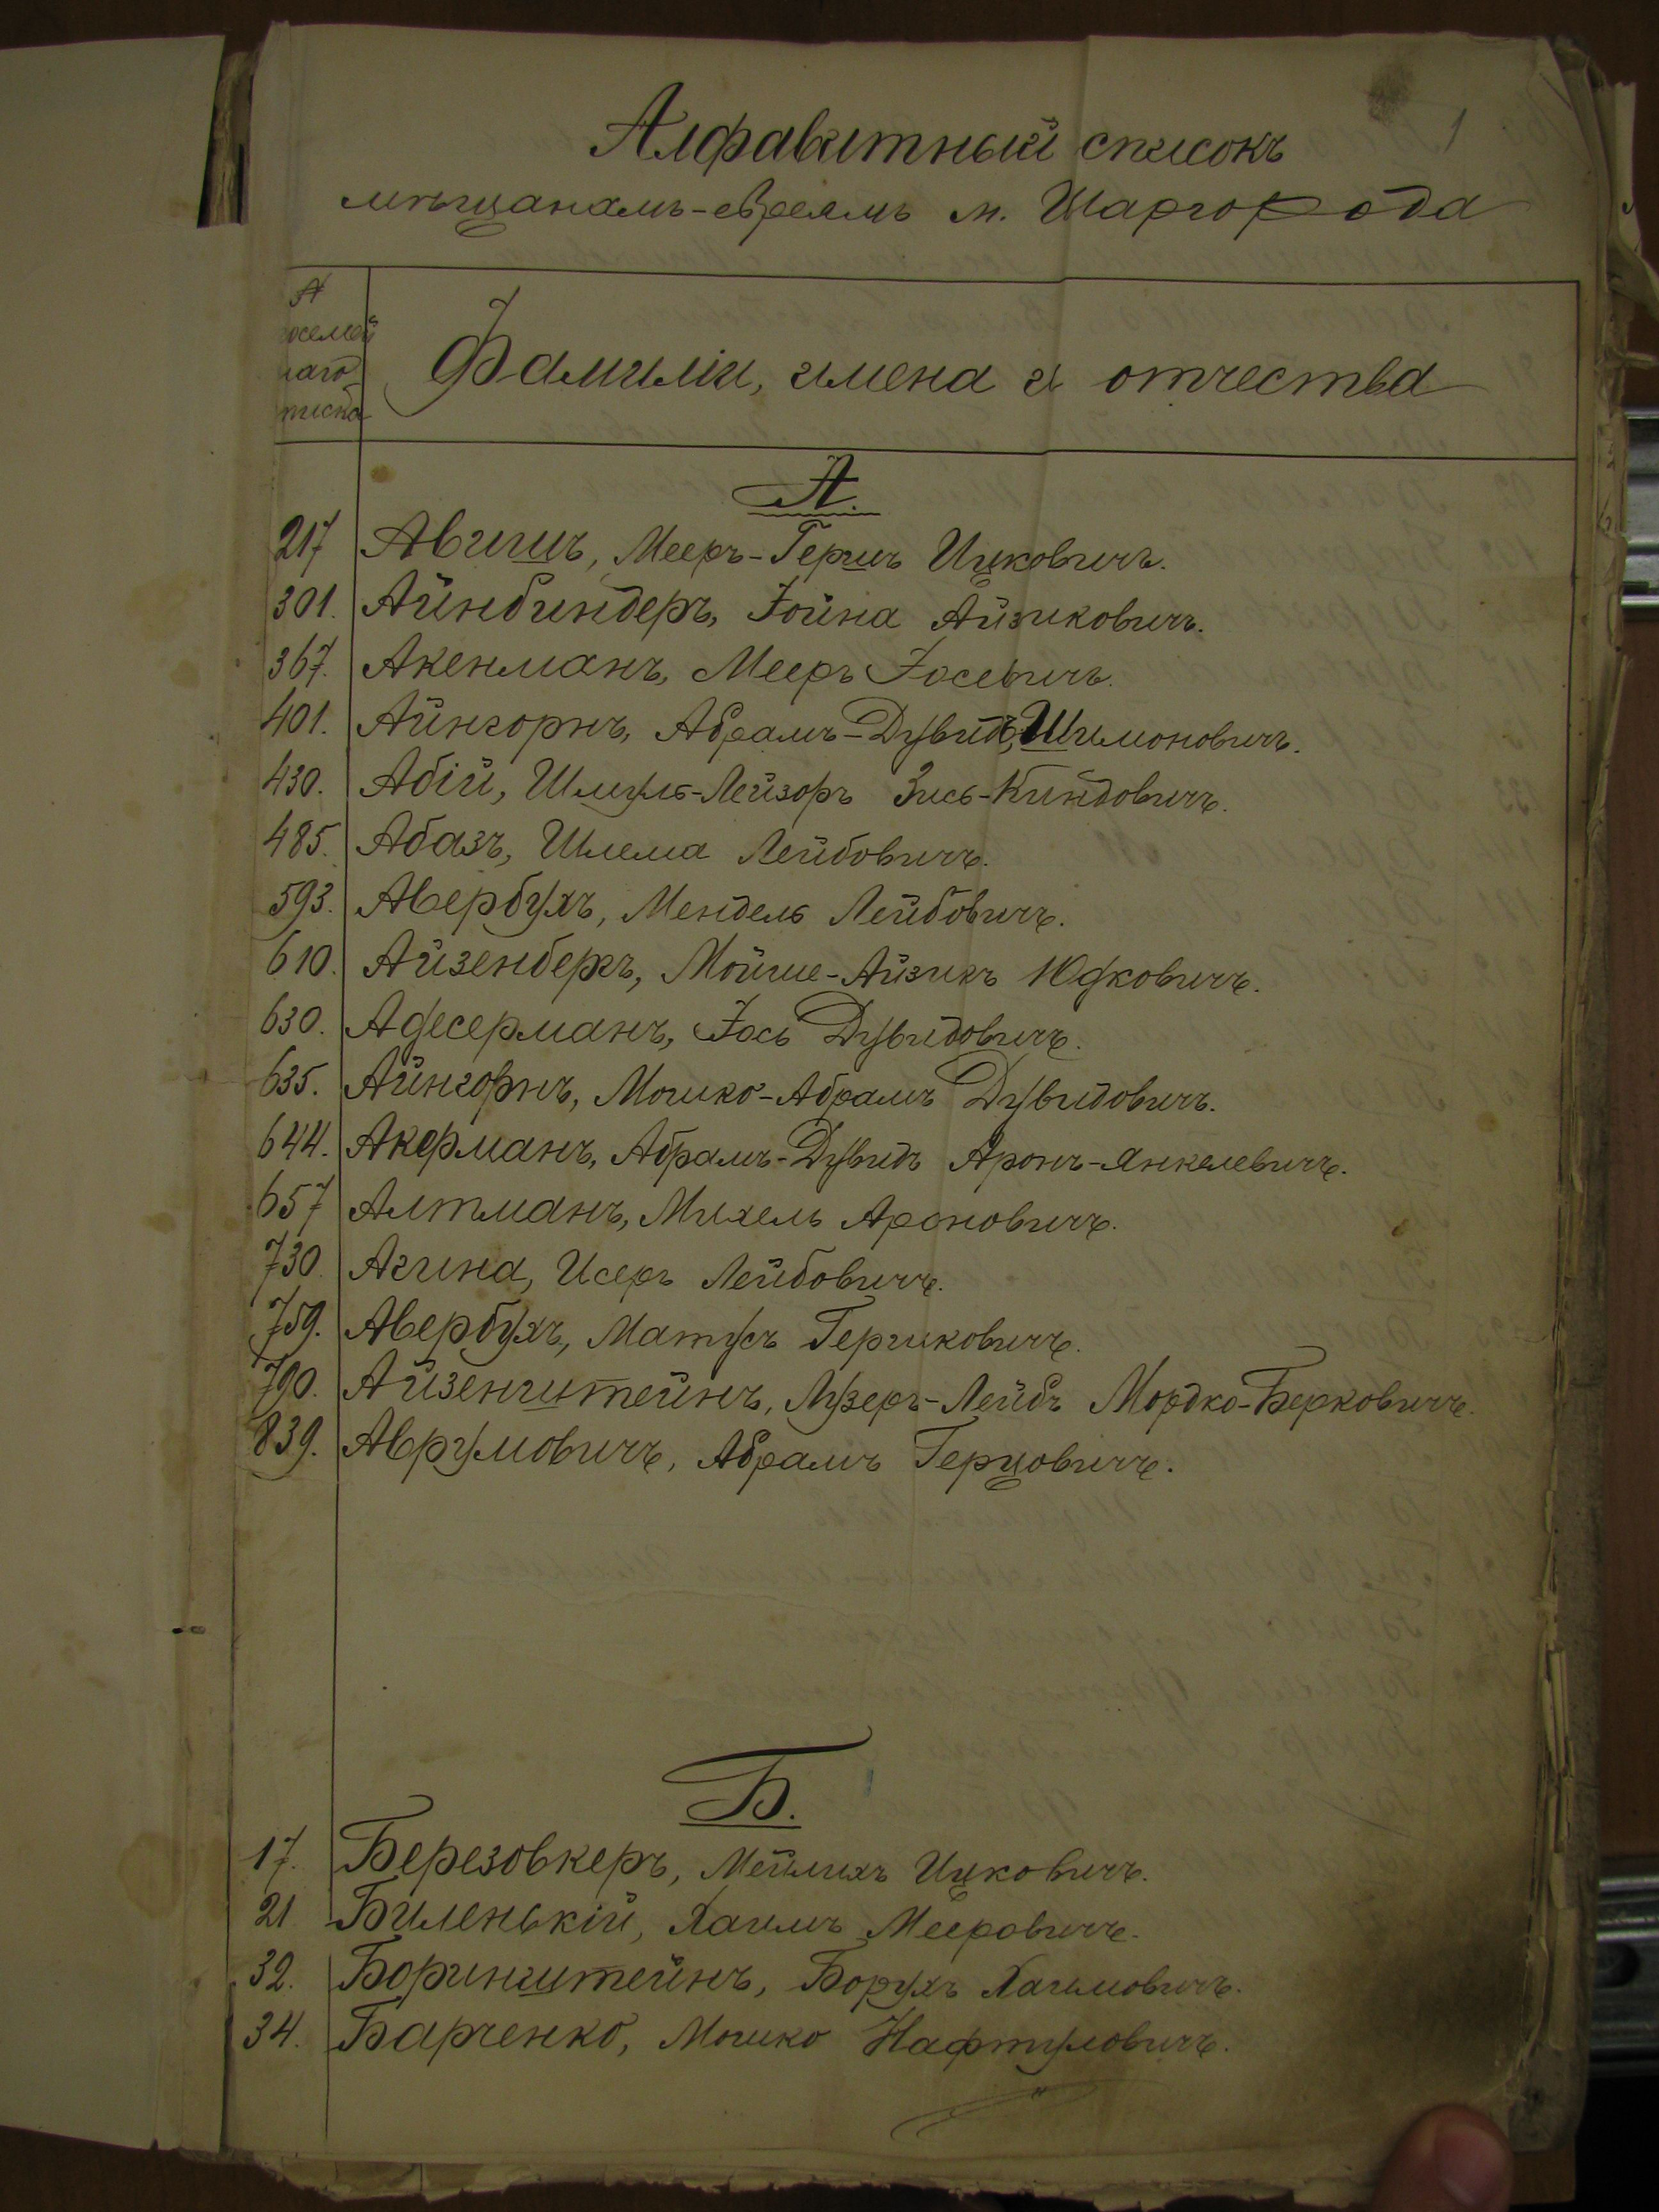 1
Алфавитный списокъ
мѣщанамъ-евреямъ м. Шаргорода
Фамиліи, имена и отчества
А.
217 Авишъ, Мееръ-Гершъ Ицковичъ.
301. Айнбиндеръ, Іойна Айзиковичъ.
367. Акенманъ, Мееръ Іосевичъ.
401. Айнгорнъ, Абрамъ-Дувидъ Шимоновичъ.
430. Абій, Шмуль-Лейзоръ Зись-Киндовичъ.
485. Абазъ, Шлема Лейбовичъ.
593. Авербухъ, Мендель Лейбовичъ.
610. Айзенбергъ, Мойше-Айзикъ Юдковичъ.
630. Адесерманъ, Іось Дувидовичъ.
635. Айнгорнъ, Мошко-Абрамъ Дувидовичъ.
644. Акерманъ, Абрамъ-Дувидъ Аронъ-Янкелевичъ.
657 Алтманъ, Михель Ароновичъ.
730. Агина, Исеръ Лейбовичъ.
759. Авербухъ, Матусъ Гершковичъ.
790. Айзенштейнъ, Лузеръ-Лейбъ Мордко-Берковичъ.
839. Аврумовичъ, Абрамъ Герцовичъ.
Б.
17. Березовкеръ, Мейлихъ Ицковичъ.
21 Биленькій, Хаимъ Мееровичъ.
32. Боринштейнъ, Борухъ Хаимовичъ.
34. Барченко, Мошко Нафтуловичъ.